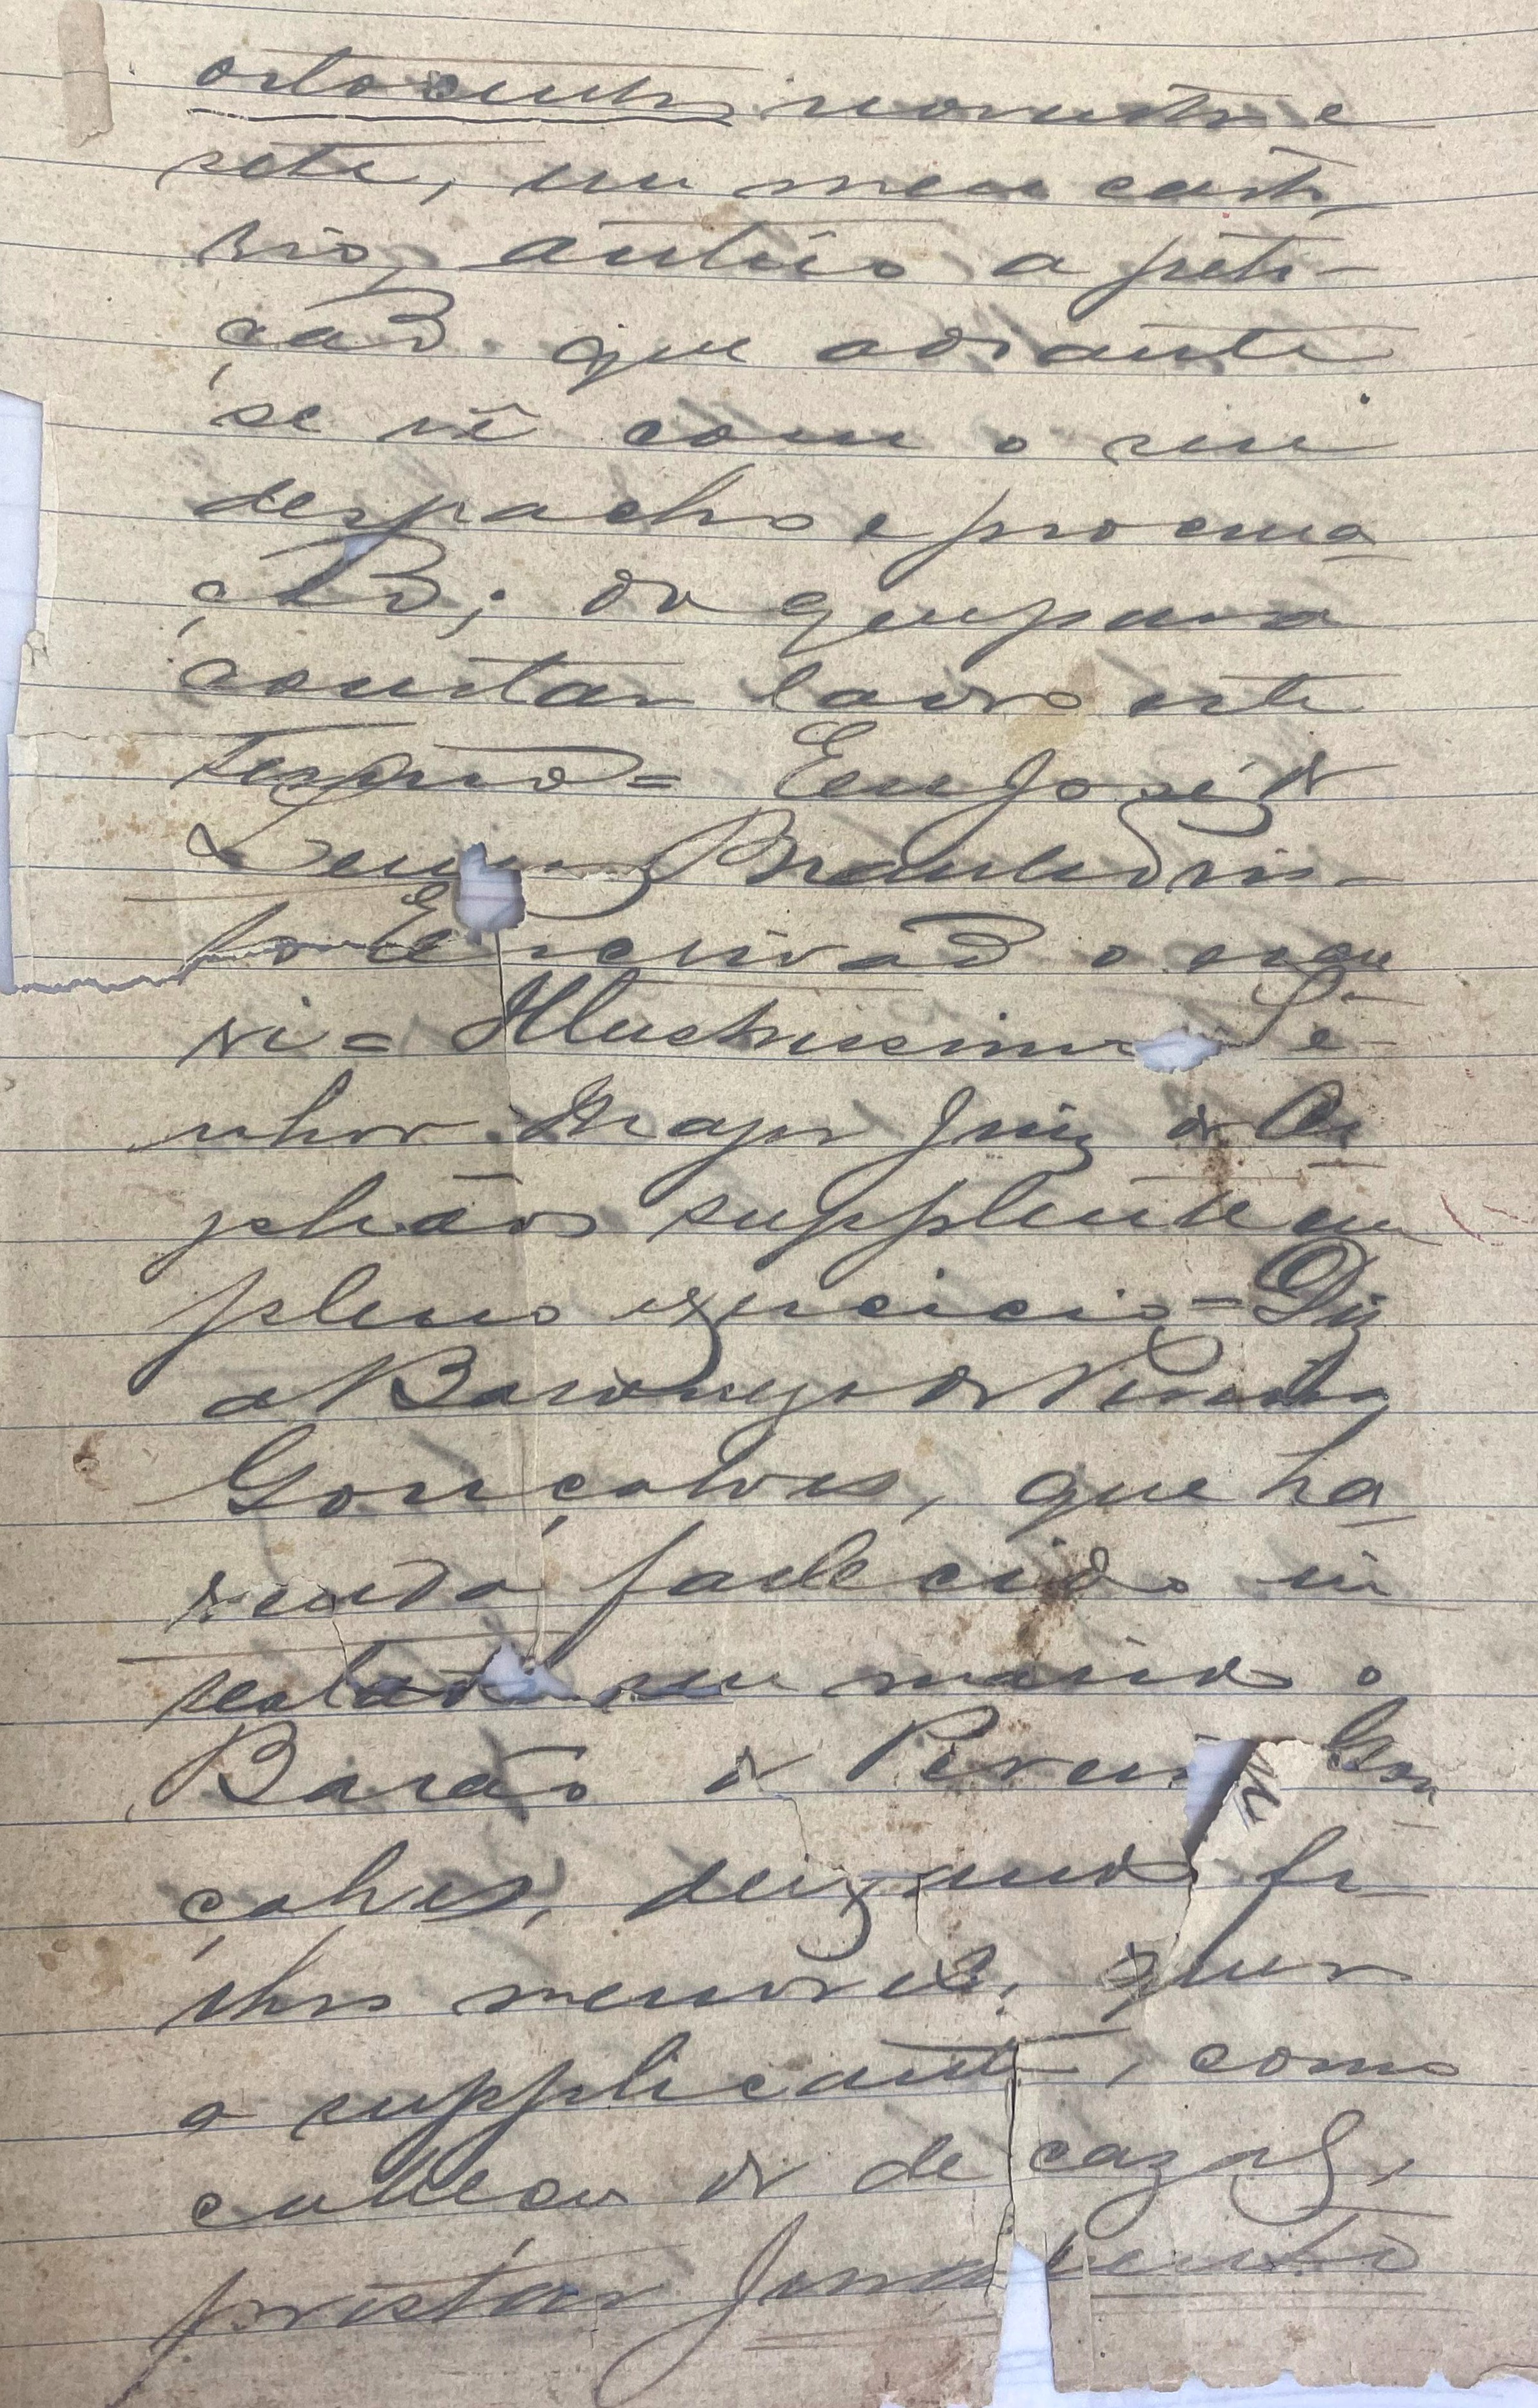 oitocentos noventa e
sete, em meu carto
rio, autúo a peti-
ção que adiante
se vê com o seu
despacho e procura
ção; do que para
constar lavro este
termo = Eu José de
Brito
Escrivão o escre
vi = Illustrissimo Se-
nhor Major Juiz de Or
phãos supplente em
pleno exercicio = Diz
a Baroneza de Pereira
Gonçalves, que ha
vendo fallecido in
testado seu marido o
Barão de Pereira Gon
çalves, deixando fi-
lhos menores, quer
a supplicante, como
cabeça de de cazal,
prestar juramento